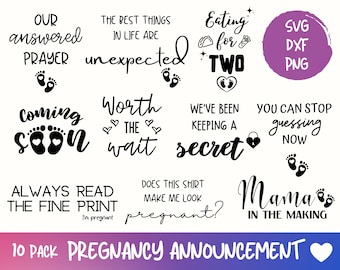 OUR
answered
PRAYER
THE BEST THINGS
IN LIFE ARE
unexpected
Eating
for
TWO
SVG
DXF
PNG
coming
SOON
Worth
THE
wait
WE'VE BEEN
KEEPING A
secret
YOU CAN STOP
guessing
NOW
ALWAYS READ
THE FINE PRINT
I'm pregnant
DOES THIS SHIRT
MAKE ME LOOK
pregnant?
Mama
IN THE MAKING
10 PACK PREGNANCY ANNOUNCEMENT